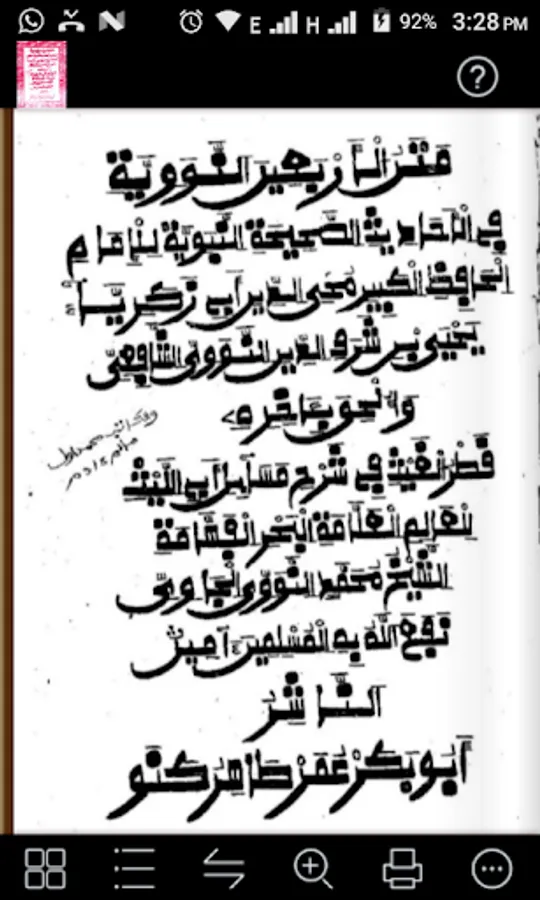 E H 92% 3:28 PM
?
متن الأربعين النووية
في الأحاديث الصحيحة النبوية للإمام
الحافظ الكبير محي الدين أبي زكرياء
يحيى بن شرف الدين النووي الشافعي
والحق بآخره
قطر الغيث في شرح مسائل أبي الليث
للعالم العلامة البحر الفهامة
الشيخ محمد النووي الجاوي
نفع الله به المسلمين آمين
الناشر
أبوبكر عمر طاهر كنو